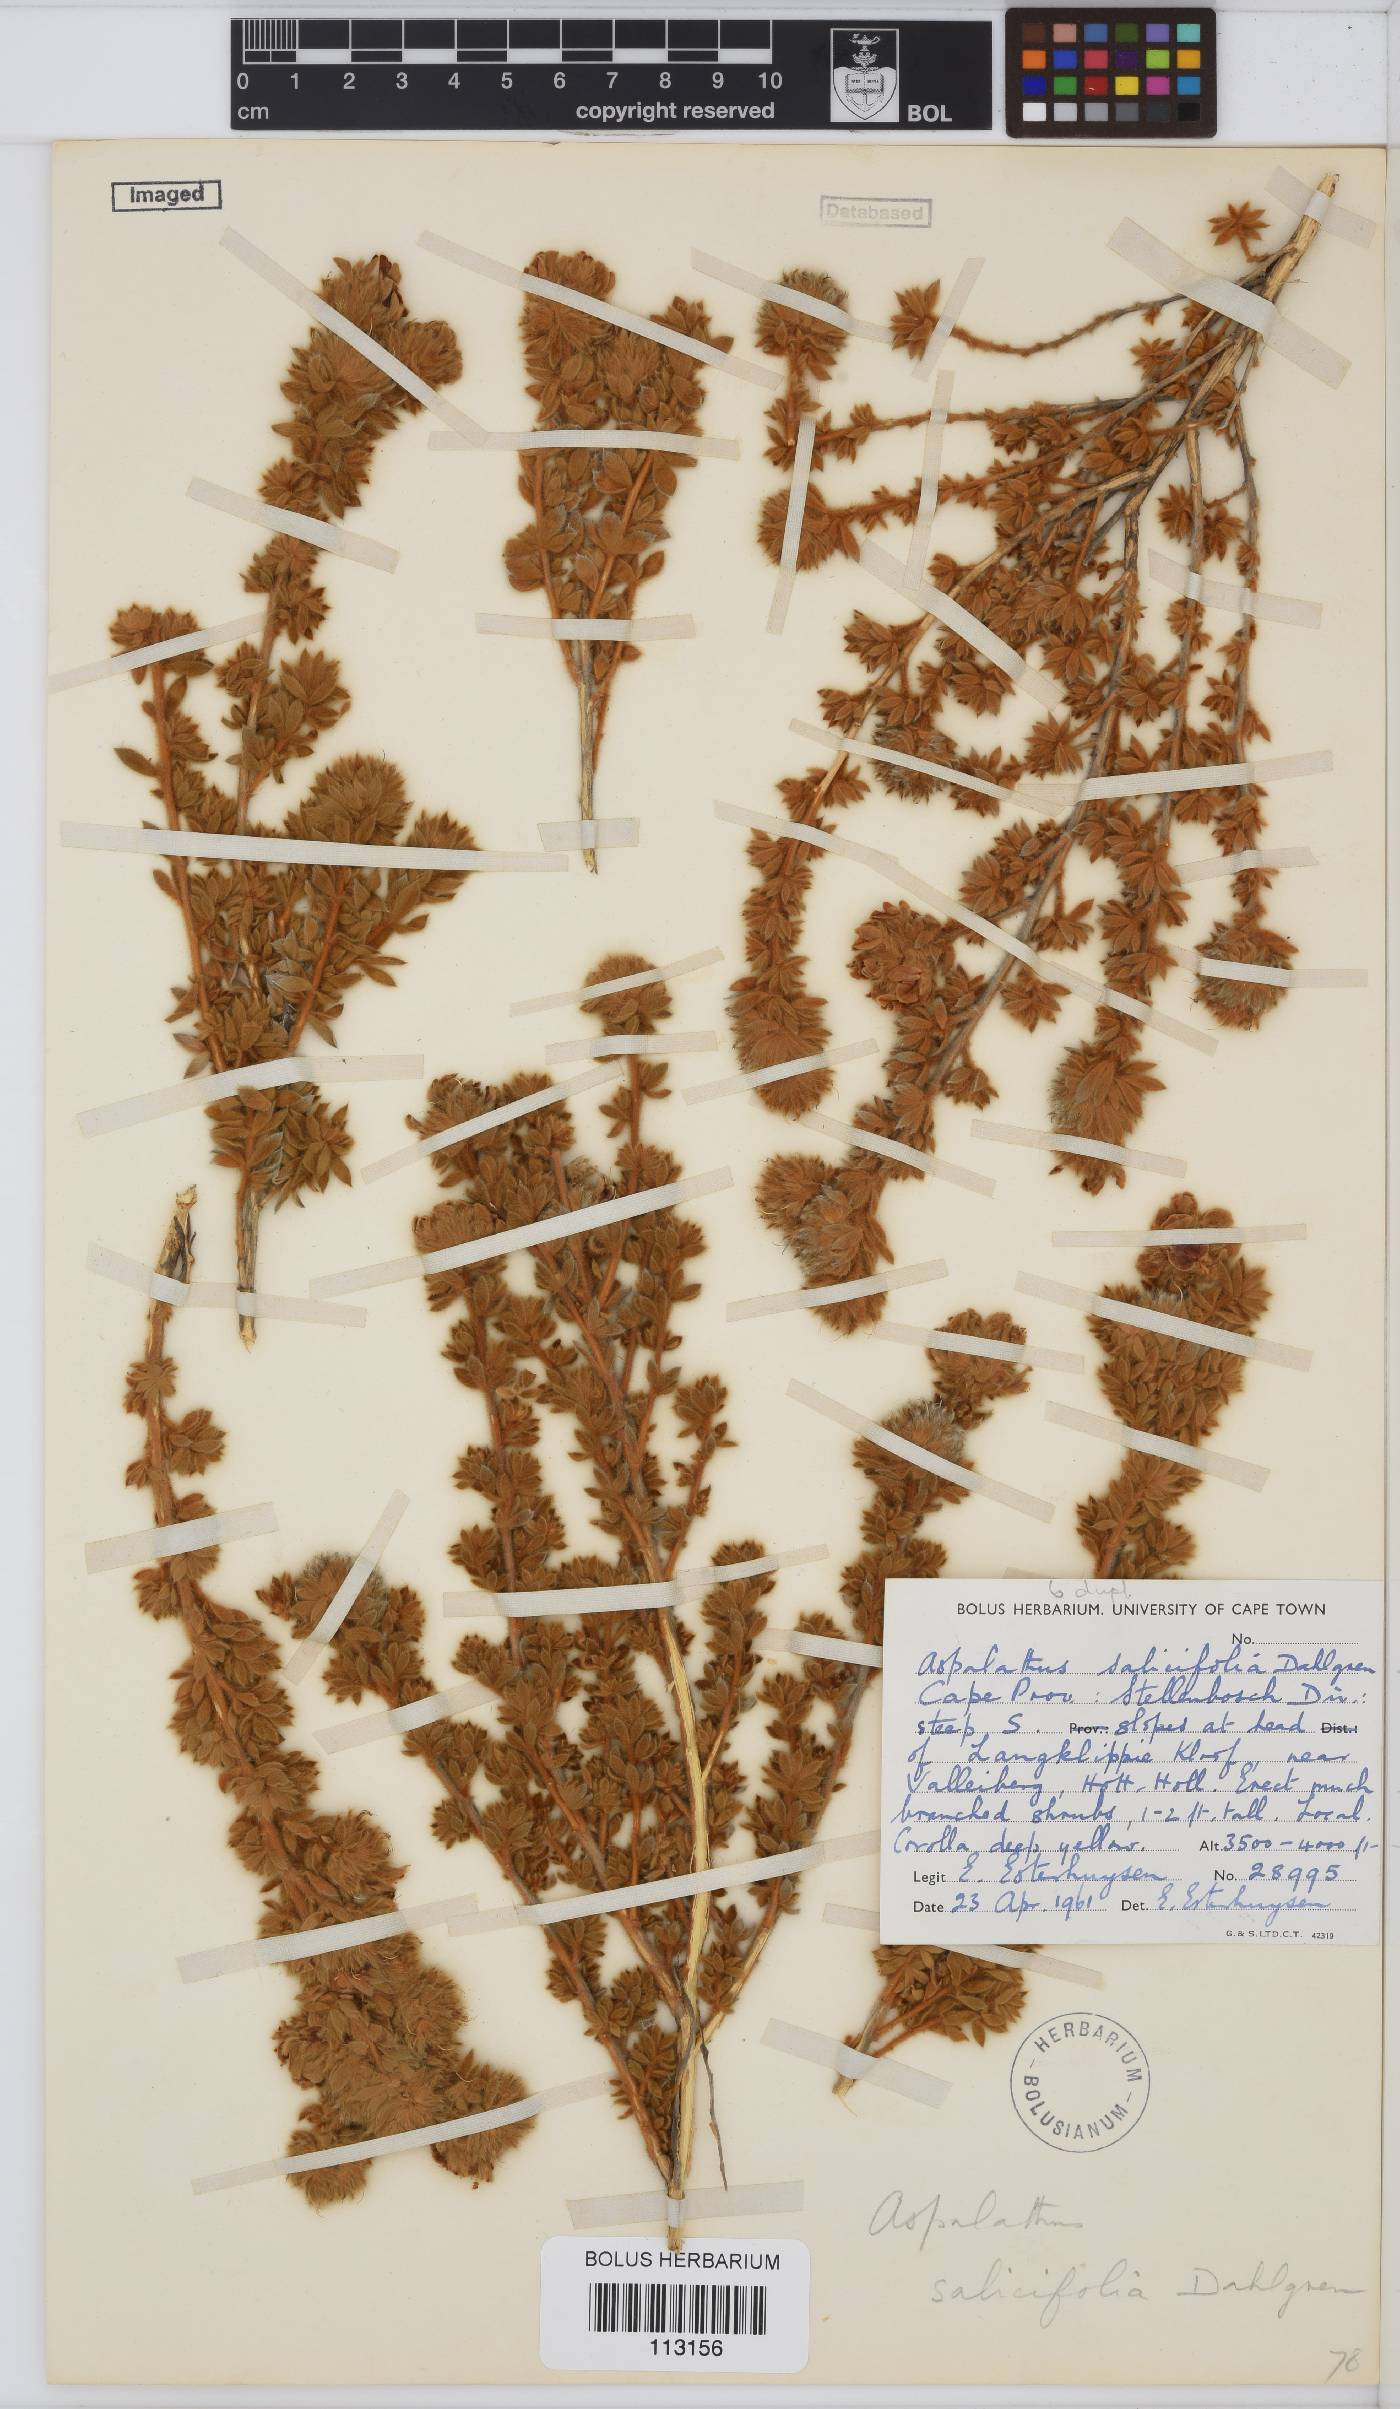 0 1 2 3 4 5 6 7 8 9 10
cm copyright reserved
BOL
Imaged
Databased
6 dupl.
BOLUS HERBARIUM. UNIVERSITY OF CAPE TOWN
No.
Aspalathus salicifolia Dahlgren
Cape Prov: Stellenbosch Div.:
steep S. Prov.: slopes at head Dist.:
of Langklippie Kloof, near
Valleiberg, Hott. Holl. Erect much
branched shrubs, 1-2 ft. tall. Local.
Corolla deep yellow. Alt. 3500-4000 ft-
Legit E. Esterhuysen No. 28995
Date 23 Apr. 1961 Det. E. Esterhuysen
G. & S. LTD. C.T. 42319
HERBARIUM
BOLUSIANUM
Aspalathus
salicifolia Dahlgren
BOLUS HERBARIUM
113156
78